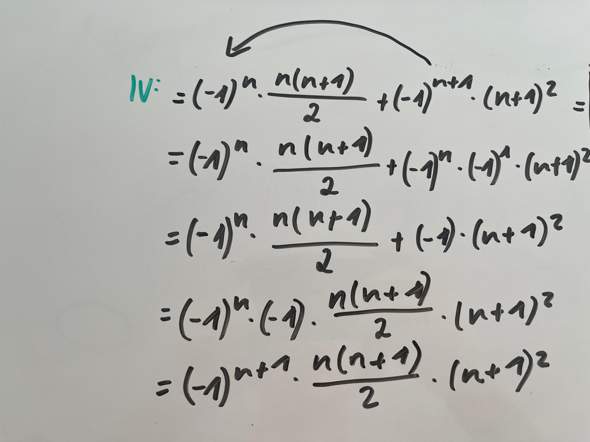 IV: = (-1)^n · n(n+1)/2 + (-1)^{n+1} · (n+1)^2 =
= (-1)^n · n(n+1)/2 + (-1)^n · (-1)^1 · (n+1)^2
= (-1)^n · n(n+1)/2 + (-1) · (n+1)^2
= (-1)^n · (-1) · n(n+1)/2 · (n+1)^2
= (-1)^{n+1} · n(n+1)/2 · (n+1)^2